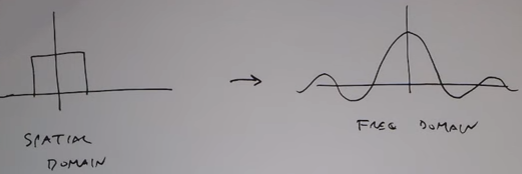 SPATIAL
DOMAIN
FREQ DOMAIN